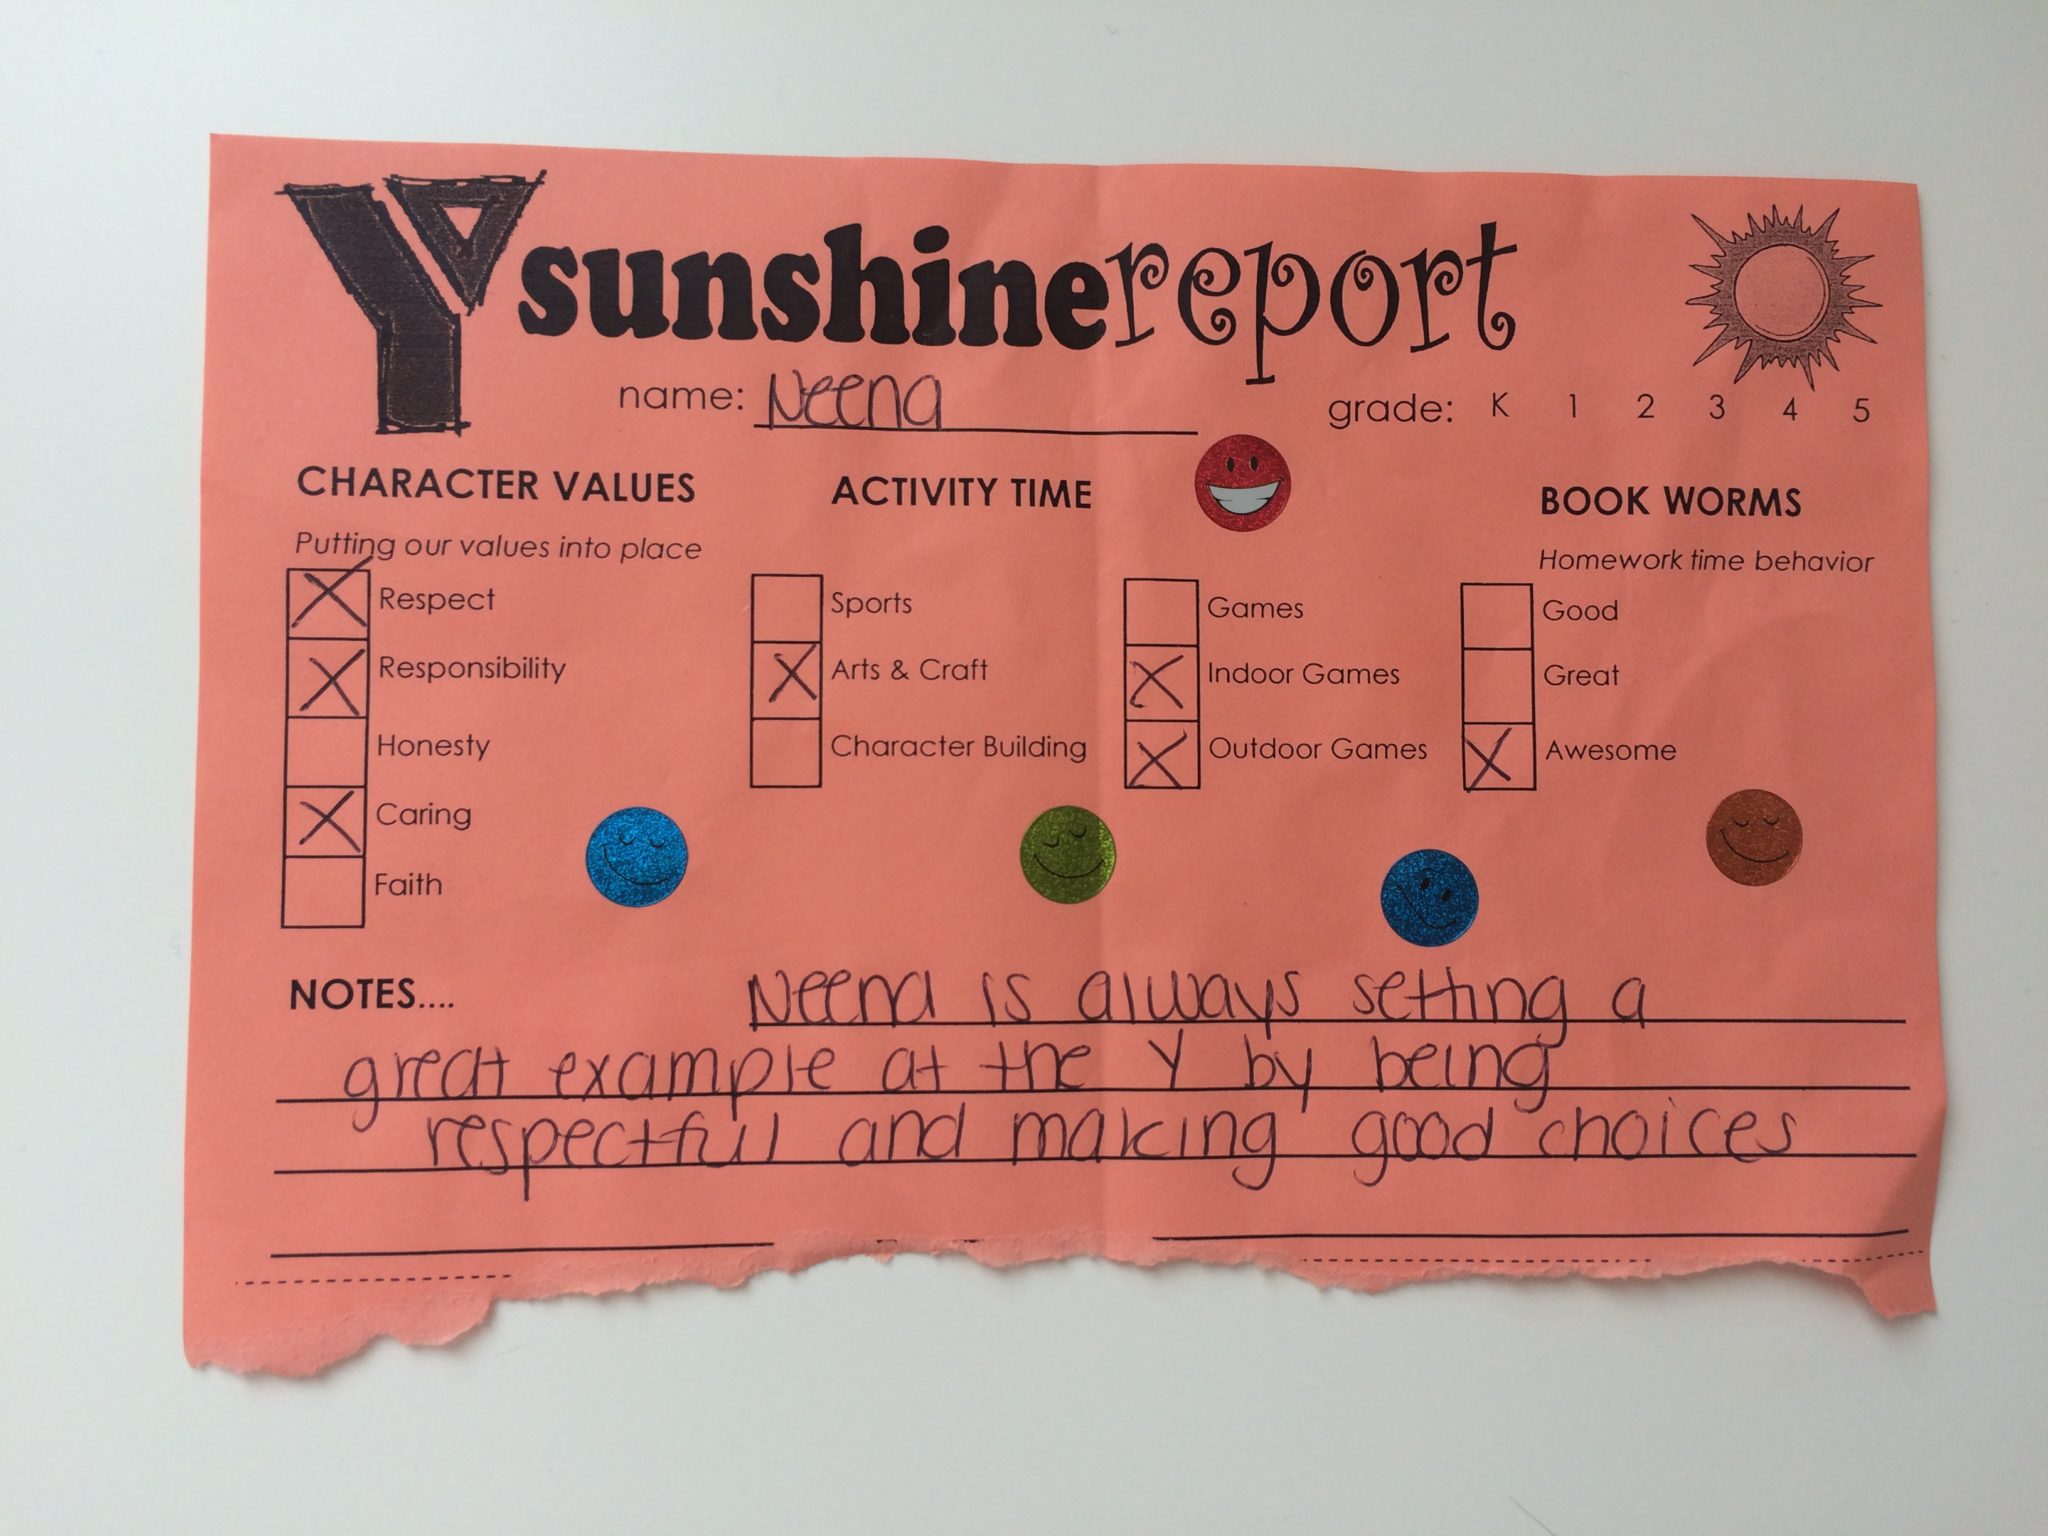 Y sunshinereport
name: Neena
grade: K 1 2 3 4 5
CHARACTER VALUES
Putting our values into place
Respect
Responsibility
Honesty
Caring
Faith
ACTIVITY TIME
Sports
Arts & Craft
Character Building
Games
Indoor Games
Outdoor Games
BOOK WORMS
Homework time behavior
Good
Great
Awesome
NOTES.... Neena is always setting a
great example at the Y by being
respectful and making good choices